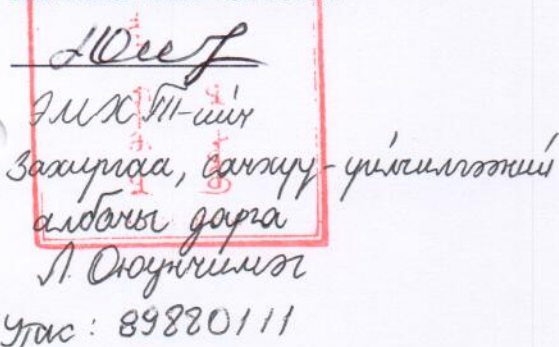 ЭМХТ-ийн
Захиргаа, санхүү-үйлчилгээний
албаны дарга
Л. Оюунчимэг
Утас: 89880111